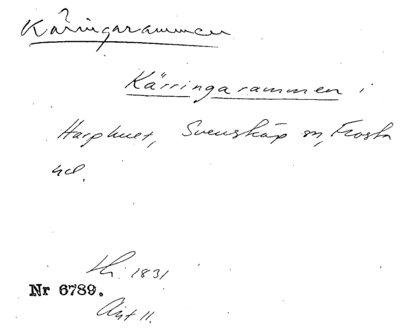 Kärringarammen
Kärringarammen i
Harphult, Svensköp sn, Frosta
hd.
lh. 1831
Nr 6789.
Akt 11.